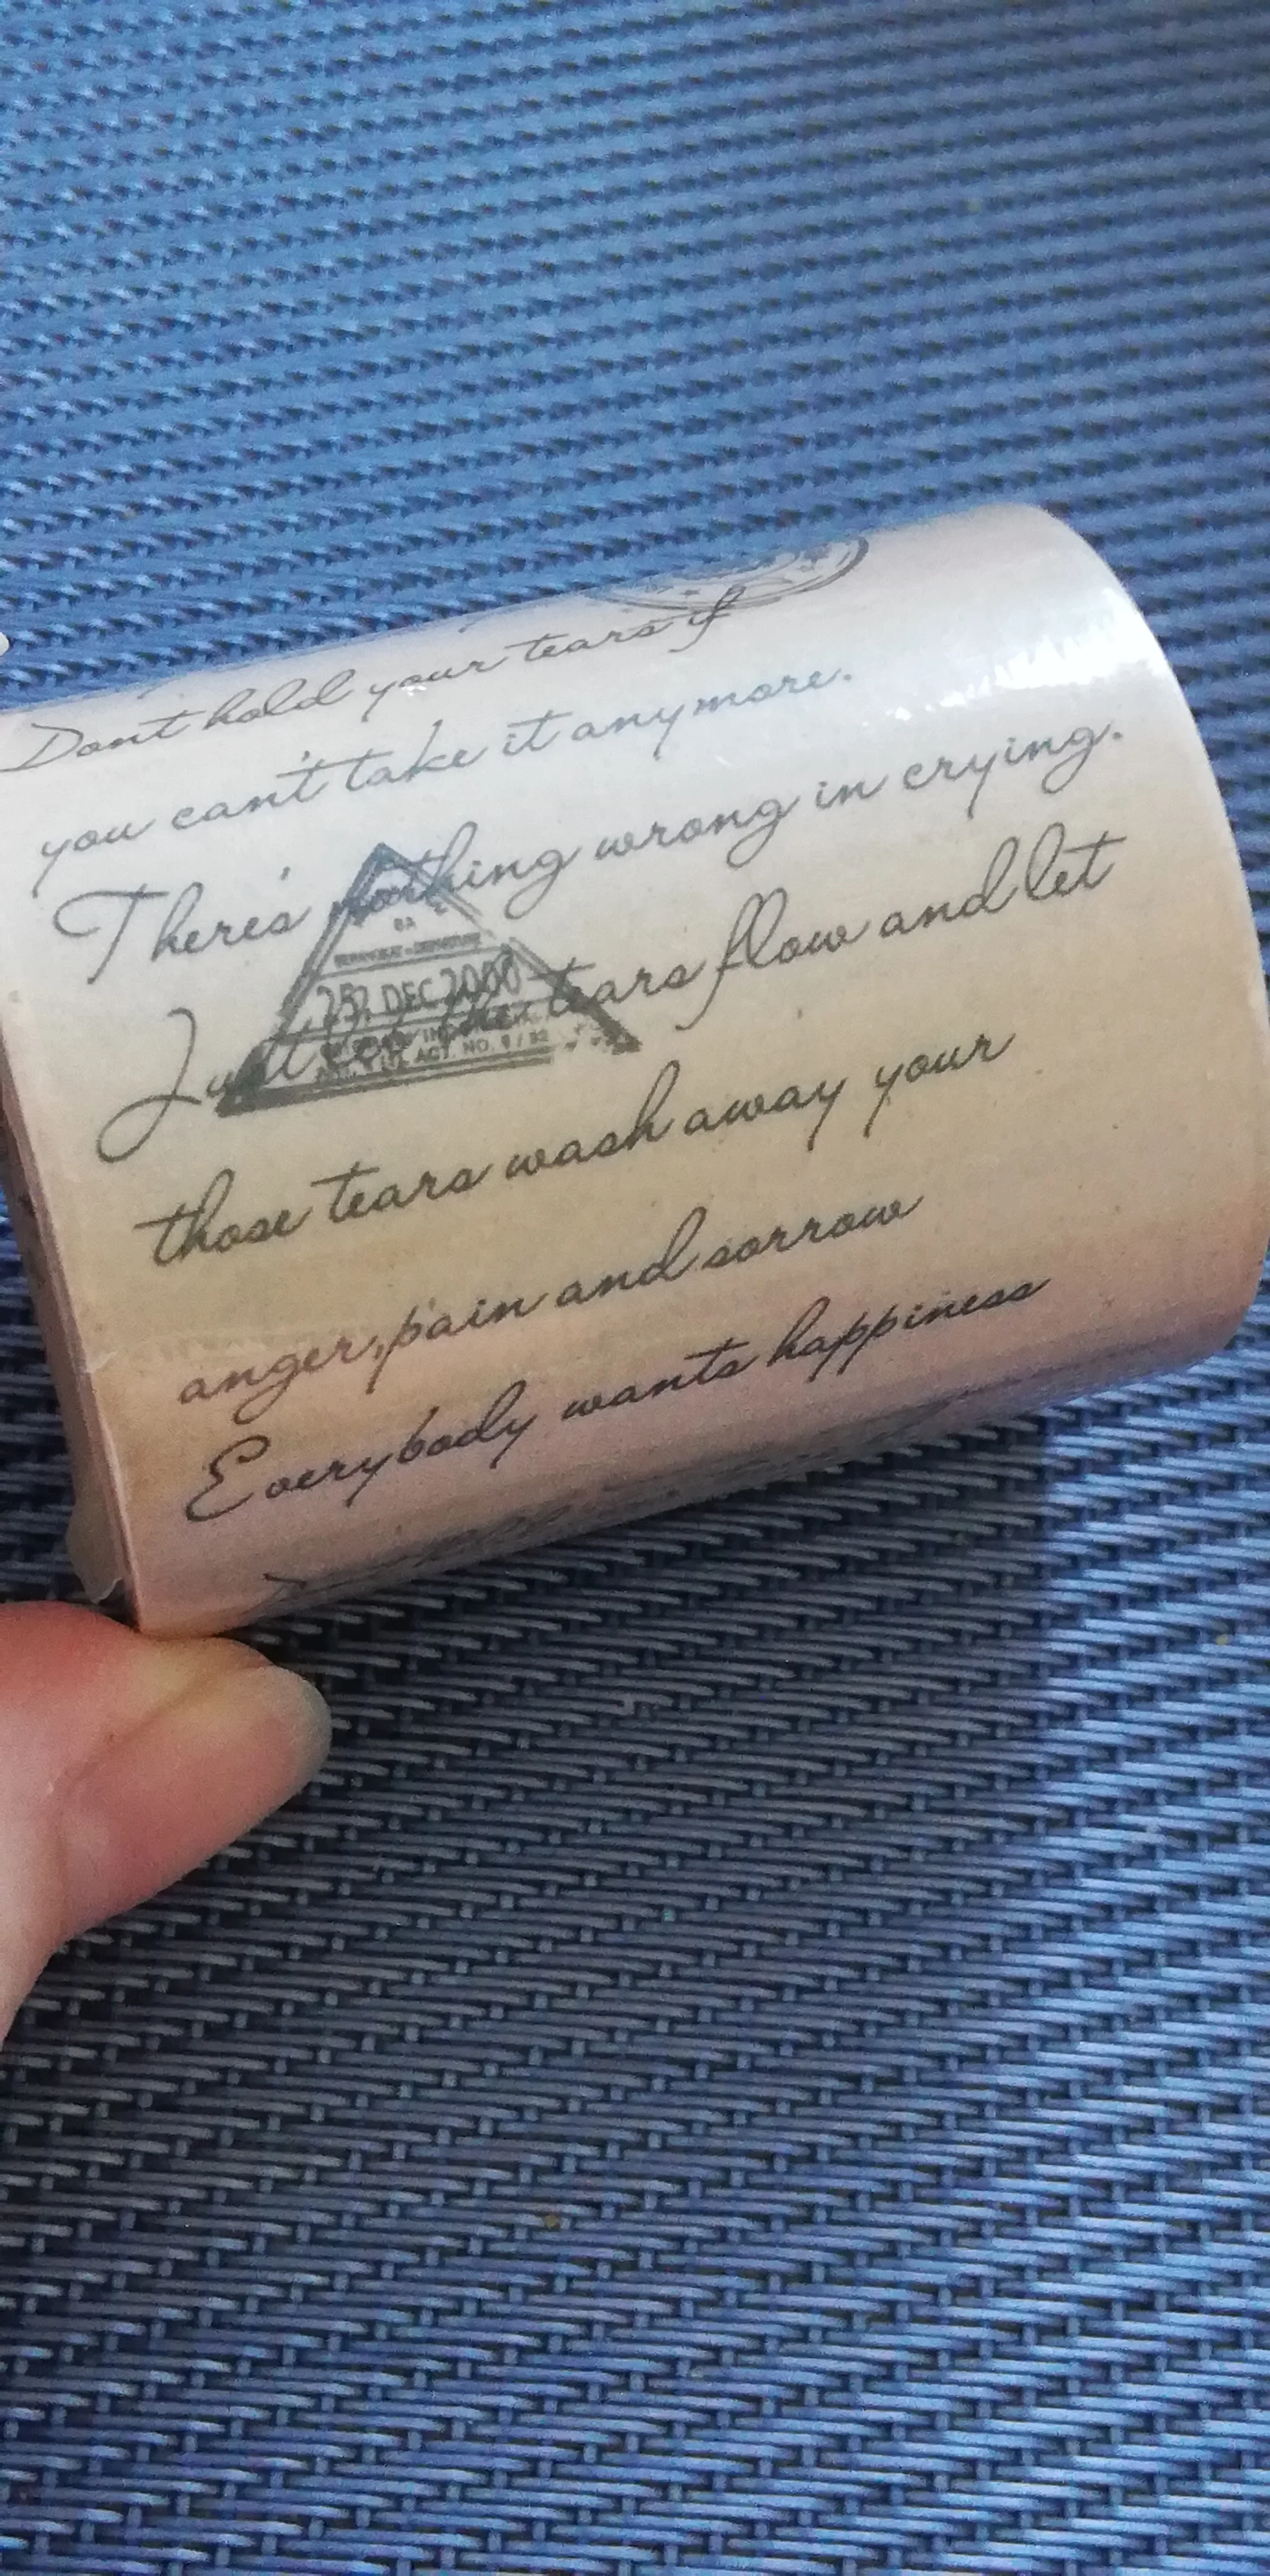 Dont hold your tears if
you can't take it anymore.
There's nothing wrong in crying.
Just let the tears flow and let
those tears wash away your
anger, pain and sorrow
Everybody wants happiness
DEC 2000
ACT. NO. 9 / 32